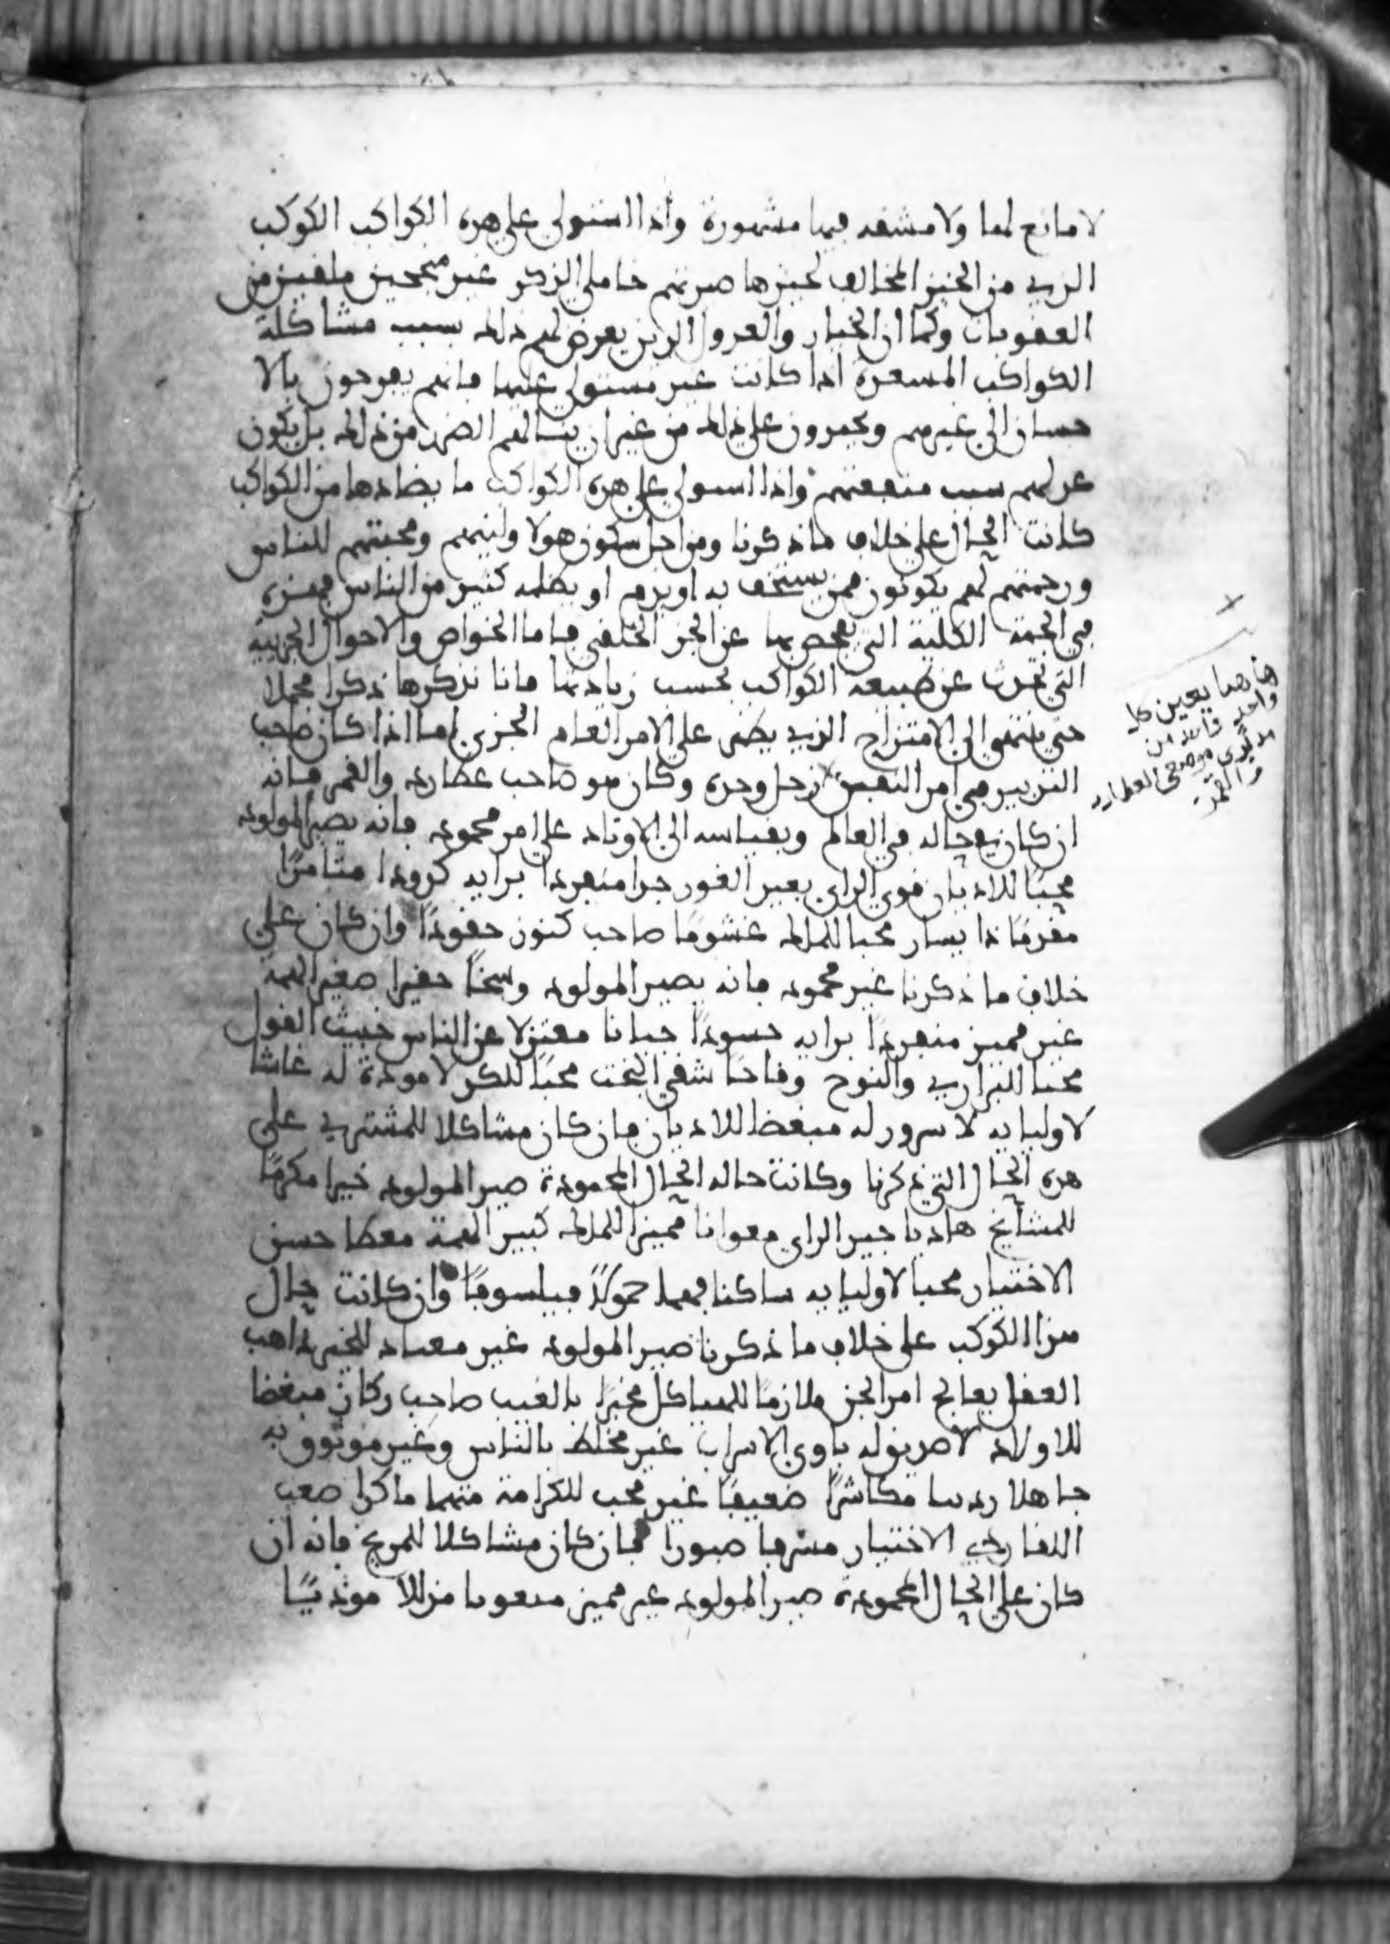 لا مانع لها ولا مشقه فيها مشهورة واذا استولي علي هذه الكواكب الكوكب
الذي من الحيز المخالف لحيزها صيرتهم خاملي الذكر غير منجحين
العقوبات وكما ان الخيار والعدول الذين يعرض لهم ذلك بسبب مشاكلة
الكواكب المسعدة اذا كانت غير مستولي عليها فانهم يفرحون بالا
حسان الي غيرهم ويحمدون علي ذلك من غير ان ينالهم الضرر من ذلك بل يكون
عدلهم سبب منفعتهم واذا استولي علي هذه الكواكب ما يضادها من الكواكب
كانت الحال علي خلاف ما ذكرنا ومن اجل سكون هولا ولينهم ومحبتهم للناس
ورحمتهم لهم يكونون ممن يستخف به او يذم او يظلمه كثير من الناس فهذه
هي الجهة الكلية التي يفحص بها عن الجز الخلقي فاما الخواص والاحوال الجزييه
التي تحدث عن طبيعة الكواكب بحسب زيادتها فانا نذكرها ذكرا مجملا
حتي ننتهي الي الامتزاج الذي يطمى علي الامر العام الجزي لها اذا كان صاحب
التدبير في امر النفس زحل وحده وكان هو صاحب عطارد والقمر فانه
ان كان في حاله في العالم وبقياسه الي الاوتاد علي امر محمود فانه يصير المولود
محبا للاديان قوي الراي بعيد الغور جدا منفردا برايه كدودا متامرا
مقدما ذا يسار محبا للملك غشوما صاحب كنوز حقودا وان كان علي
خلاف ما ذكرنا غير محمود فانه يصير المولود وسخا حقيرا صغير الهمه
غير مميز منفردا برايه حسودا جبانا معتزلا عن الناس خبيث القول
محبا للبراري والنوح وقاحا شقي البخت محبا للكد لا مودة له غاشا
لاوليايه لا سرور له مبغضا للاديان فان كان مشاكلا للمشتري علي
هذه الحال التي ذكرنا وكانت حاله الحال المحمودة صير المولود خيرا مكرما
للمشايخ هاديا جيد الراي معوانا مميزا للملك كبير الهمة معطا حسن
الاختيار محبا لاوليايه ساكنا فهما حمولا فيلسوفا وان كانت حال
هذا الكوكب علي خلاف ما ذكرنا صير المولود غير معتاد للخير ذاهب
العقل يعالج امر الجن ملازما للهياكل مخبرا بالغيب صاحب ركان مبغضا
للاولاد لا صديق له ياوي الاسراب غير مخلط بالناس وغير موثوق به
جاهلا رديا مكاشرا ضعيفا غير محب للكرامة متهما ماكرا صعب
اللقا ردي الاختيار مترفيا صبورا فان كان مشاكلا للمريخ فانه ان
كان علي الحال المحمودة صير المولود غير مميز متعوبا مذللا موذيا
هاهنا يعين كل
واحد فايده من
مدبري موضعي العطارد
والقمر